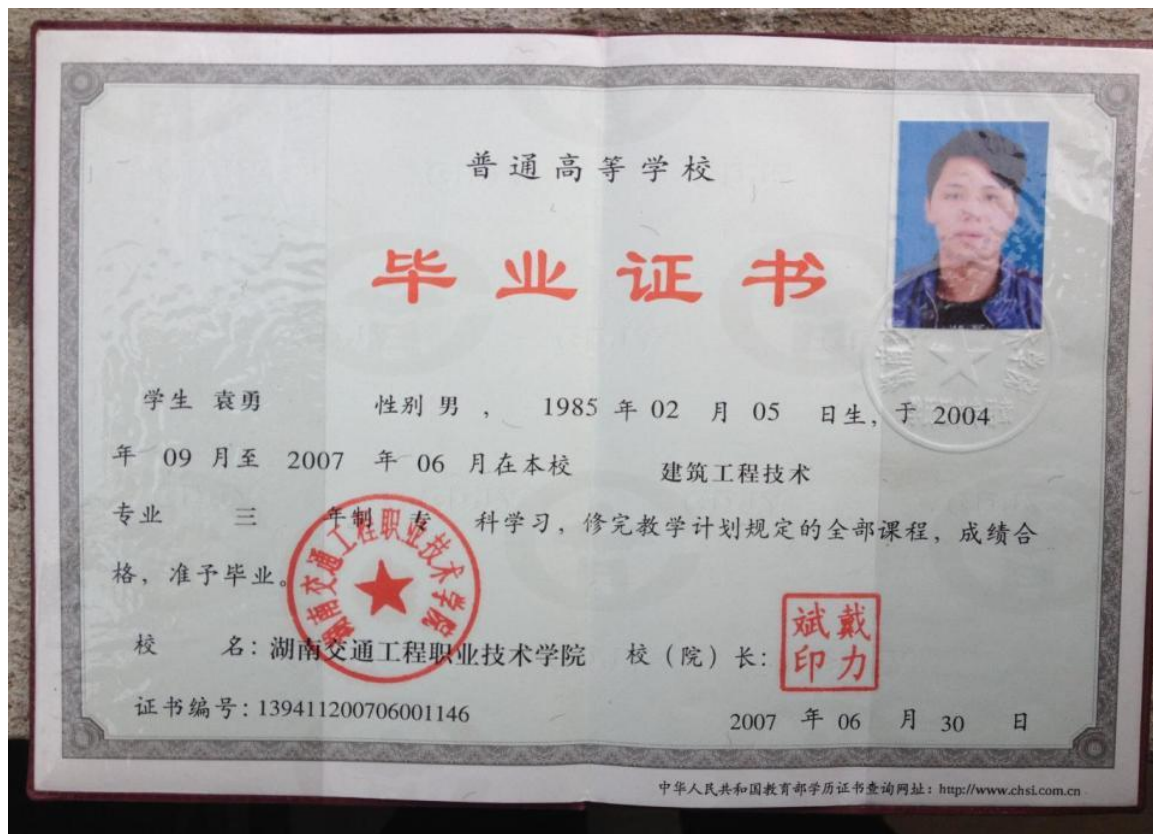 普通高等学校
毕业证书
学生 袁勇 性别 男 ， 1985 年 02 月 05 日生，于 2004
年 09 月至 2007 年 06 月在本校 建筑工程技术
专业 三 年制 专 科学习，修完教学计划规定的全部课程，成绩合
格，准予毕业。
湖南交通工程职业技术学院
校 名：湖南交通工程职业技术学院 校（院）长：
戴力斌印
证书编号：139411200706001146
2007 年 06 月 30 日
中华人民共和国教育部学历证书查询网址：http://www.chsi.com.cn